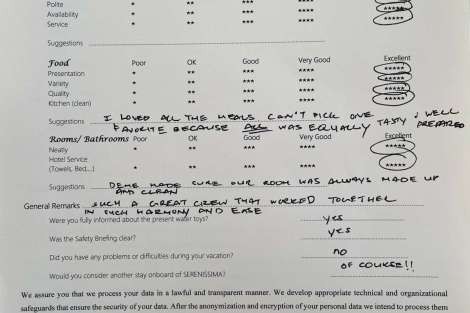 Polite * ** *** **** *****
Availability * ** *** **** *****
Service * ** *** **** *****
Suggestions
Food Poor OK Good Very Good Excellent
Presentation * ** *** **** *****
Variety * ** *** **** *****
Quality * ** *** **** *****
Kitchen (clean) * ** *** **** *****
Suggestions I LOVED ALL THE MEALS CAN'T PICK ONE
FAVORITE BECAUSE ALL WAS EQUALLY TASTY & WELL PREPARED
Rooms/ Bathrooms Poor OK Good Very Good Excellent
Neatly * ** *** **** *****
Hotel Service
(Towels, Bed...) * ** *** **** *****
Suggestions MADE OUR ROOM WAS ALWAYS MADE UP
AND CLEAN
General Remarks SUCH A GREAT CREW THAT WORKED TOGETHER
IN SUCH HARMONY AND EASE
Were you fully informed about the present water toys? yes
Was the Safety Briefing clear? yes
Did you have any problems or difficulties during your vacation? no
Would you consider another stay onboard of SERENISSIMA? OF COURSE!!
We assure you that we process your data in a lawful and transparent manner. We develop appropriate technical and organizational
safeguards that ensure the security of your data. After the anonymization and encryption of your personal data we intend to process them